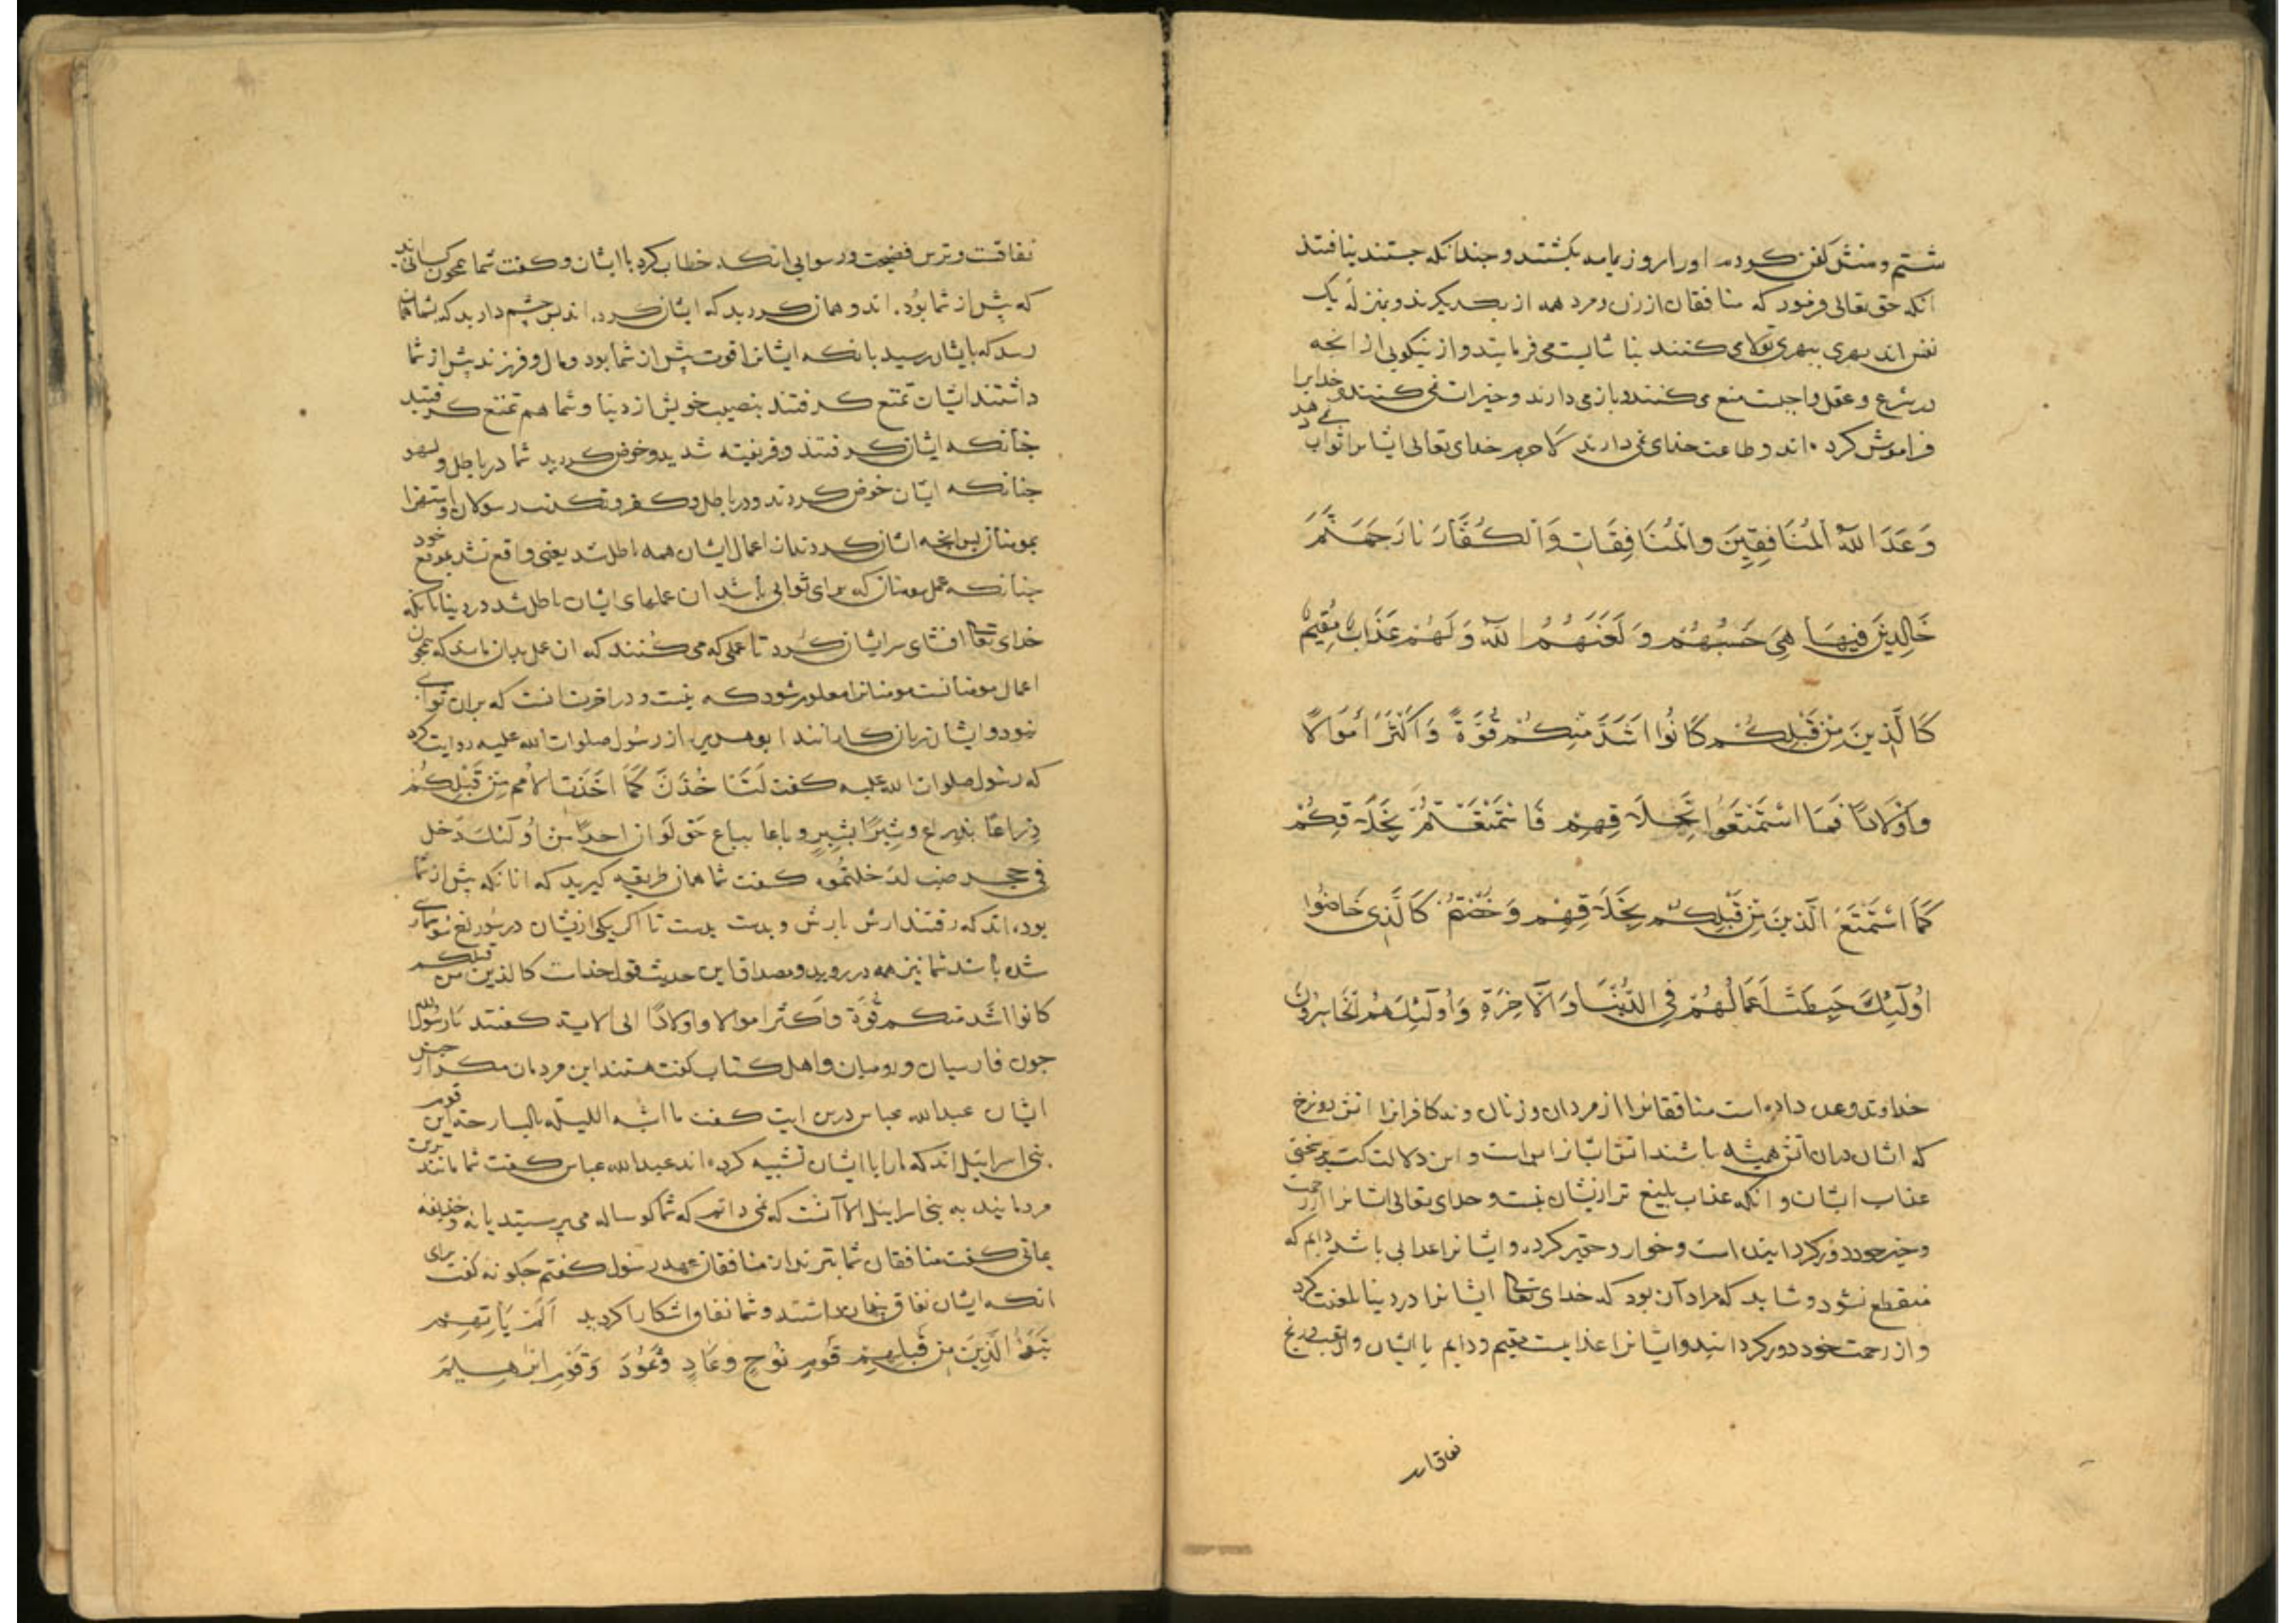 آنکه حق تعالی فرمود که منافقان از زن و مرد همه از یکدیگرند و بمنزله یک
نفس اند بهری ببهری تولا می کنند بنا شایست می فرمایند و از نیکویی از انچه
در شرع و عقل واجبست منع می کنند و باز می دارند و خیرات نمی کنند و خدایرا
فراموش کرده اند و طاعت خدای نمی دارند لا جرم خدای تعالی ایشانرا ثواب نمی دهد
وَعَدَ اللّهُ الْمُنَافِقِينَ وَالْمُنَافِقَاتِ وَالْكُفَّارَ نَارَ جَهَنَّمَ
خَالِدِينَ فِيهَا هِيَ حَسْبُهُمْ وَلَعَنَهُمُ اللّهُ وَلَهُمْ عَذَابٌ مُقِيمٌ
كَالَّذِينَ مِنْ قَبْلِكُمْ كَانُوا اَشَدَّ مِنْكُمْ قُوَّةً وَاَكْثَرَ اَمْوَالًا
وَاَوْلَادًا فَمَا اسْتَمْتَعُوا بِخَلَاقِهِمْ فَاسْتَمْتَعْتُمْ بِخَلَاقِكُمْ
كَمَا اسْتَمْتَعَ الَّذِينَ مِنْ قَبْلِكُمْ بِخَلَاقِهِمْ وَخُضْتُمْ كَالَّذِي خَاضُوا
اُولَئِكَ حَبِطَتْ اَعْمَالُهُمْ فِي الدُّنْيَا وَالْآخِرَةِ وَاُولَئِكَ هُمُ الْخَاسِرُونَ
خداوند وعده داده است منافقانرا از مردان و زنان و نه کافرانرا اتش دوزخ
که ایشان دران اتش همیشه باشند اتش ایشانرا بس است و این دلالت کند بر سختی
عذاب ایشان و انکه عذاب بلیغ تر ازیشان نیست و خدای تعالی ایشانرا از رحمت
و خیر خود دور کردانیده است و خوار و حقیر کرده و ایشانرا عذابی باشد دایم که
منقطع نشود و شاید که مراد آن بود که خدای تعالی ایشانرا در دنیا لعنت کرد
و از رحمت خود دور کردانید و ایشانرا عذابیست مقیم و دایم با ایشان و
نفاقست و ترس فضیحت و رسوایی انکه خطاب کرد با ایشان و کفت شما همچون کسانی اند
که پیش از شما بوده اند و همان کردید که ایشان کرده اند پس چشم دارید که بشما همان
رسد که بایشان رسید بانکه ایشانرا قوت پیش از شما بود و مال و فرزند پیش از شما
داشتند ایشان تمتع کرفتند بنصیب خویش از دنیا و شما هم تمتع کرفتید
چنانکه ایشان کرفتند و فریفته شدید و خوض کردید شما در باطل و لهو
چنانکه ایشان خوض کردند در باطل و کفر و تکذیب رسولان و استهزا
بمومنان پس انچه ایشان کردند از اعمال ایشان همه باطل شد یعنی واقع نشد بموقع خود
چنانکه عمل مومنان که برای ثوابی باشد ان عملهای ایشان باطل شد در دنیا بانکه
خدای تعالی افشای سر ایشان کرد تا عملی که می کنند که ان عمل بدان ماند که همچون
اعمال مومنانست مومنانرا معلوم شود که نیست و در اخرت انست که بران ثوابی
نبود و ایشان زیان کارانند ابو هریره از رسول صلوات الله علیه روایت کرد
که رسول صلوات الله علیه کفت لَتَاخُذُنَّ كَمَا اَخَذَتِ الامم مِنْ قَبْلِكُمْ
ذِراعًا بذراع و شِبْرًا بشِبْرٍ و باعا بباع حتی لَوْ ان احدًا من اُولئك دخل
فی حجر ضب لدخلتموه کفت شما همان طریقه کیرید که انانکه پیش از شما
بوده اند که رفتند ارش بارش و بدست بدست تا اکر یکی ازیشان در سوراخ سوسماری
شده باشد شما نیز همه در روید و مصداق این حدیث قول خداست کالذین من قبلکم
کانوا اشد منکم قُوّة و اکثر اموالا و اولادًا الی الایة کفتند یا رسول الله
چون فارسیان و رومیان و اهل کتاب کفت هستند این مردمان مکر از جنس
ایشان عبدالله عباس درین ایت کفت ما اشبه اللیلة بالبارحة این قوم
بنی اسرائیل اند که ما را با ایشان تشبیه کرده اند عبدالله عباس کفت شما مانند ترین
مردمانید به بنی اسرائیل الا آنست که نمی دانم که شما کوساله می پرستید یا نه و حذیفه
یمانی کفت منافقان شما بترند از منافقان عهد رسول کفتم چکونه کفت برای
انکه ایشان نفاق پنهان داشتند و شما نفاق اشکارا کردید اَلَمْ يَأْتِهِمْ
نَبَأُ الَّذِينَ مِن قَبْلِهِمْ قَوْمِ نُوحٍ وَعَادٍ وَثَمُودَ وَقَوْمِ ابْرَهِيمَ